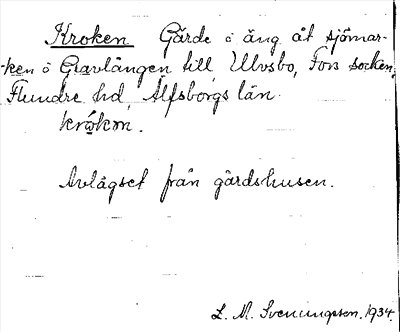 Kroken Gärde o äng åt sjömar-
ken o Gravlången till Ulvsbo, Fors socken,
Flundre hd, Älfsborgs län.
Avlägset från gårdshusen.
L. M. Svenungsson. 1934.